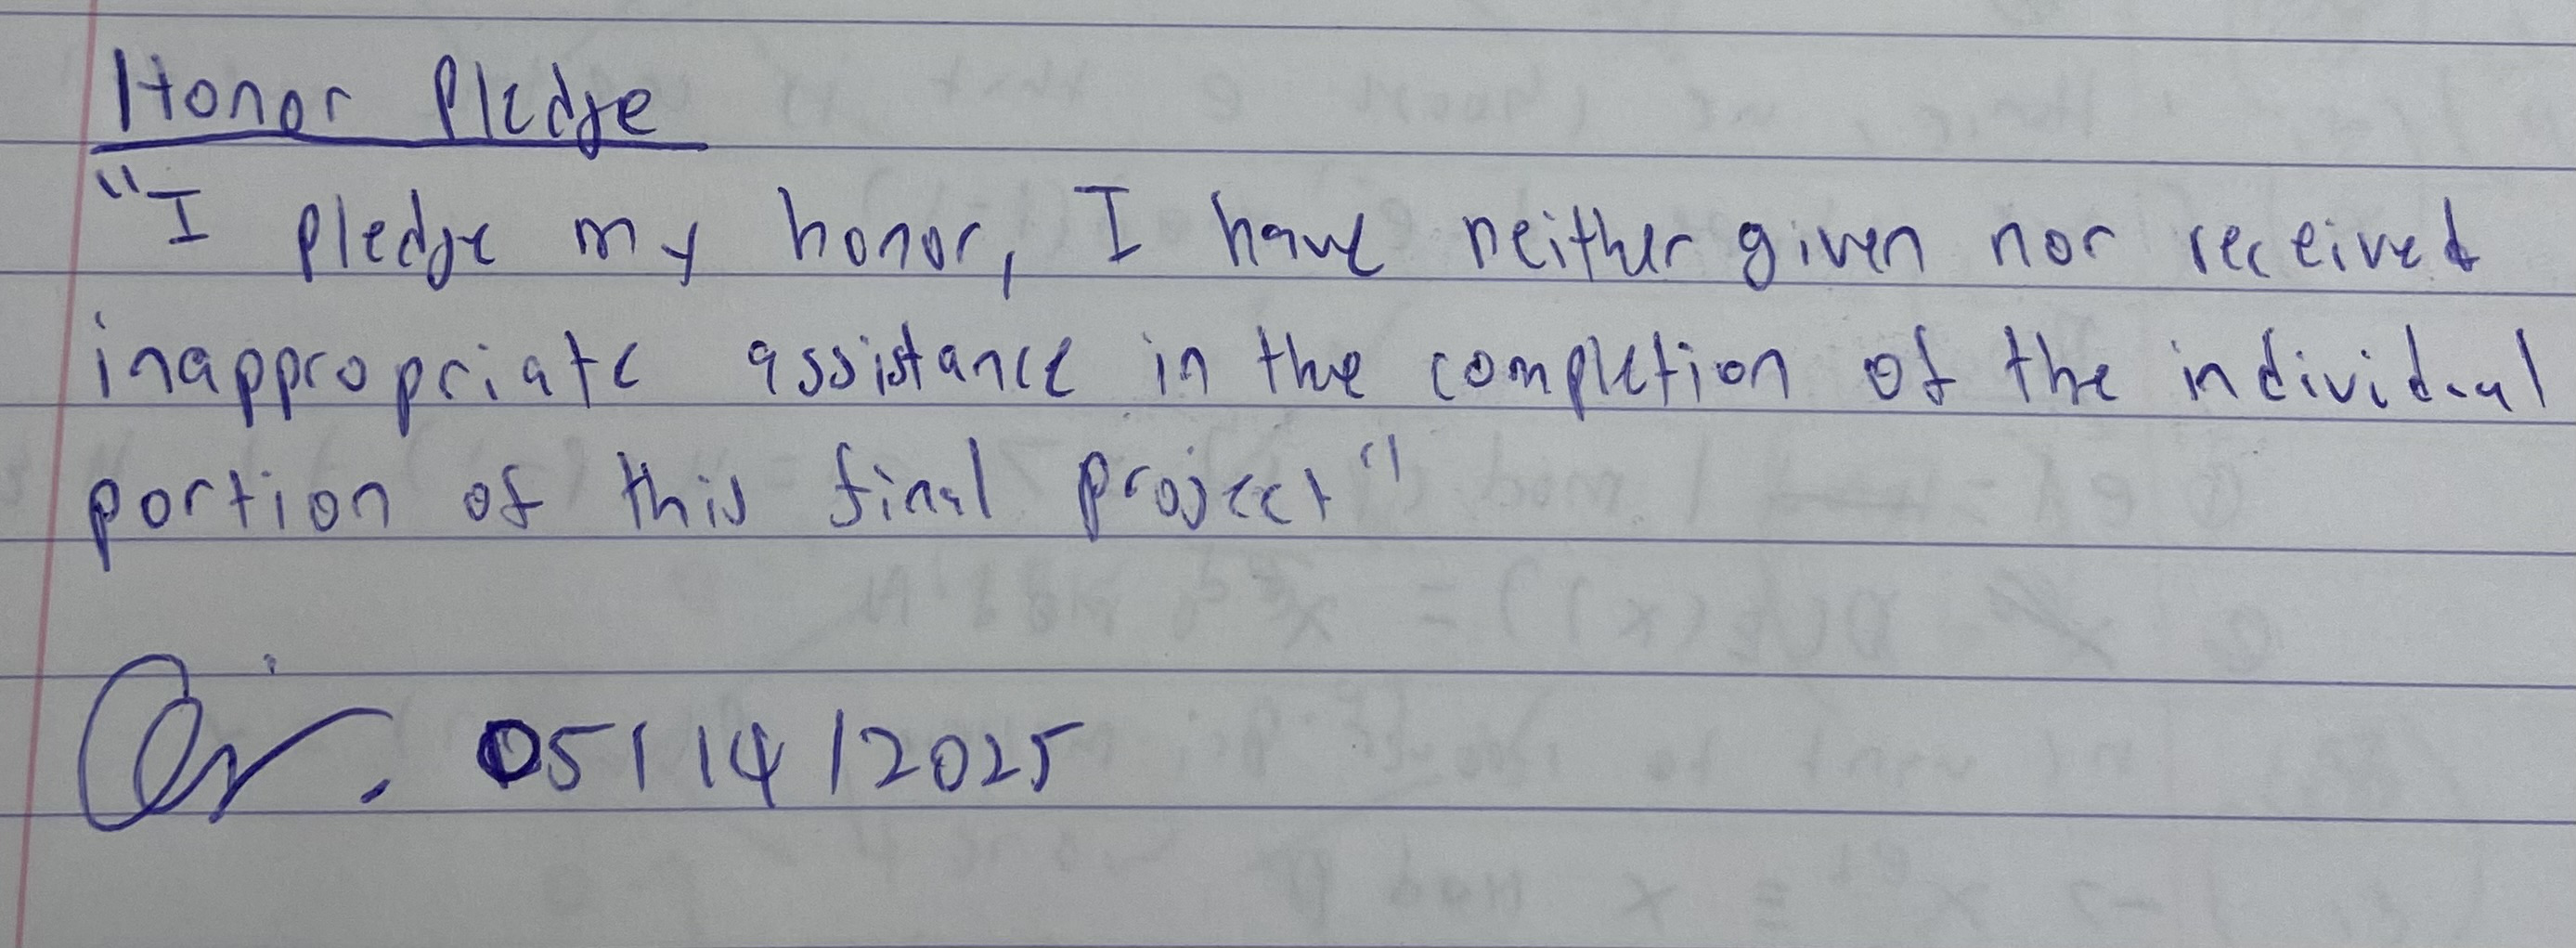 Honor Pledge
"I pledge my honor, I have neither given nor received
inappropriate assistance in the completion of the individual
portion of this final project"
05/14/2025